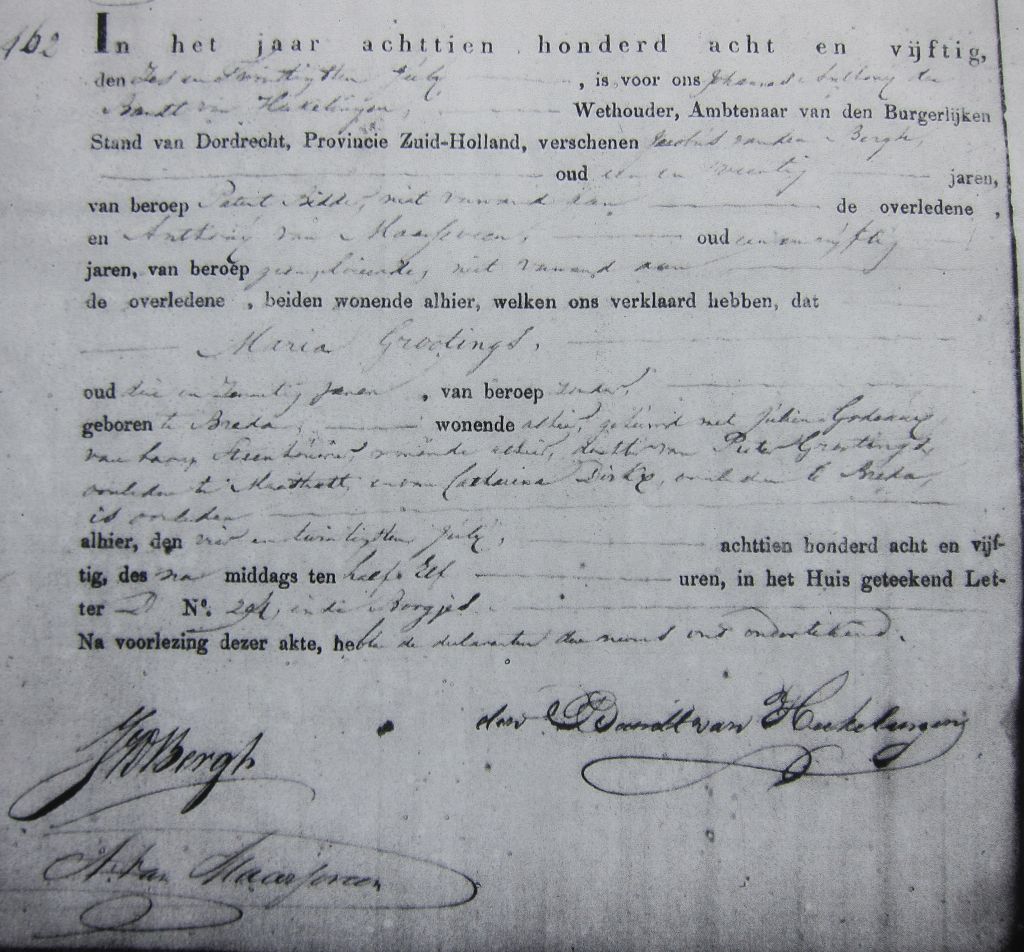 162
In het jaar achttien honderd acht en vijftig,
den Zes en Twintigsten July, is voor ons Johannes Anthony den
Bandt van Heukelingen, Wethouder, Ambtenaar van den Burgerlijken
Stand van Dordrecht, Provincie Zuid-Holland, verschenen Jacobus van den Bergh,
oud een en jaren,
van beroep niet vervand aan de overledene,
en Anthony van Maarseveen, oud een en vijftig
jaren, van beroep geemploieerde, niet vervand aan
de overledene, beiden wonende alhier, welken ons verklaard hebben, dat
Maria Grootings,
oud drie en jaren, van beroep zonder,
geboren te Breda, wonende alhier, gehuwd met Julien
wonende alhier, dochter van Pieter Grootings,
overleden te en van Catharina Dirkx, overleden te Breda,
is overleden
alhier, den vier en twintigsten July, achttien honderd acht en vijf-
tig, des na middags ten half Elf uren, in het Huis geteekend Let-
ter D No. in de
Na voorlezing dezer akte, hebben de declaranten die nevens ons ondertekend.
den Bandt van Heukelingen
JVDBergh
A. Van Maarseveen